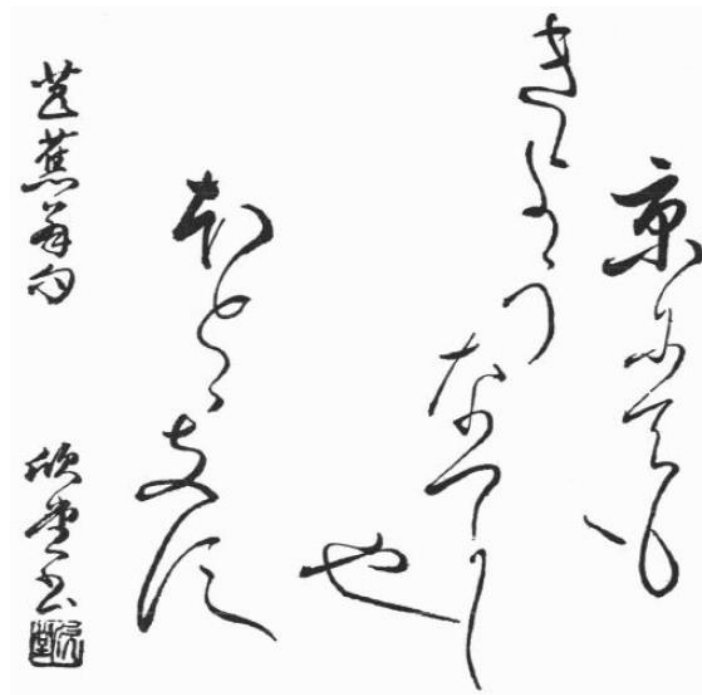 京にても
きようなつかし
や
ほとゝきす
芭蕉翁句
欣堂書